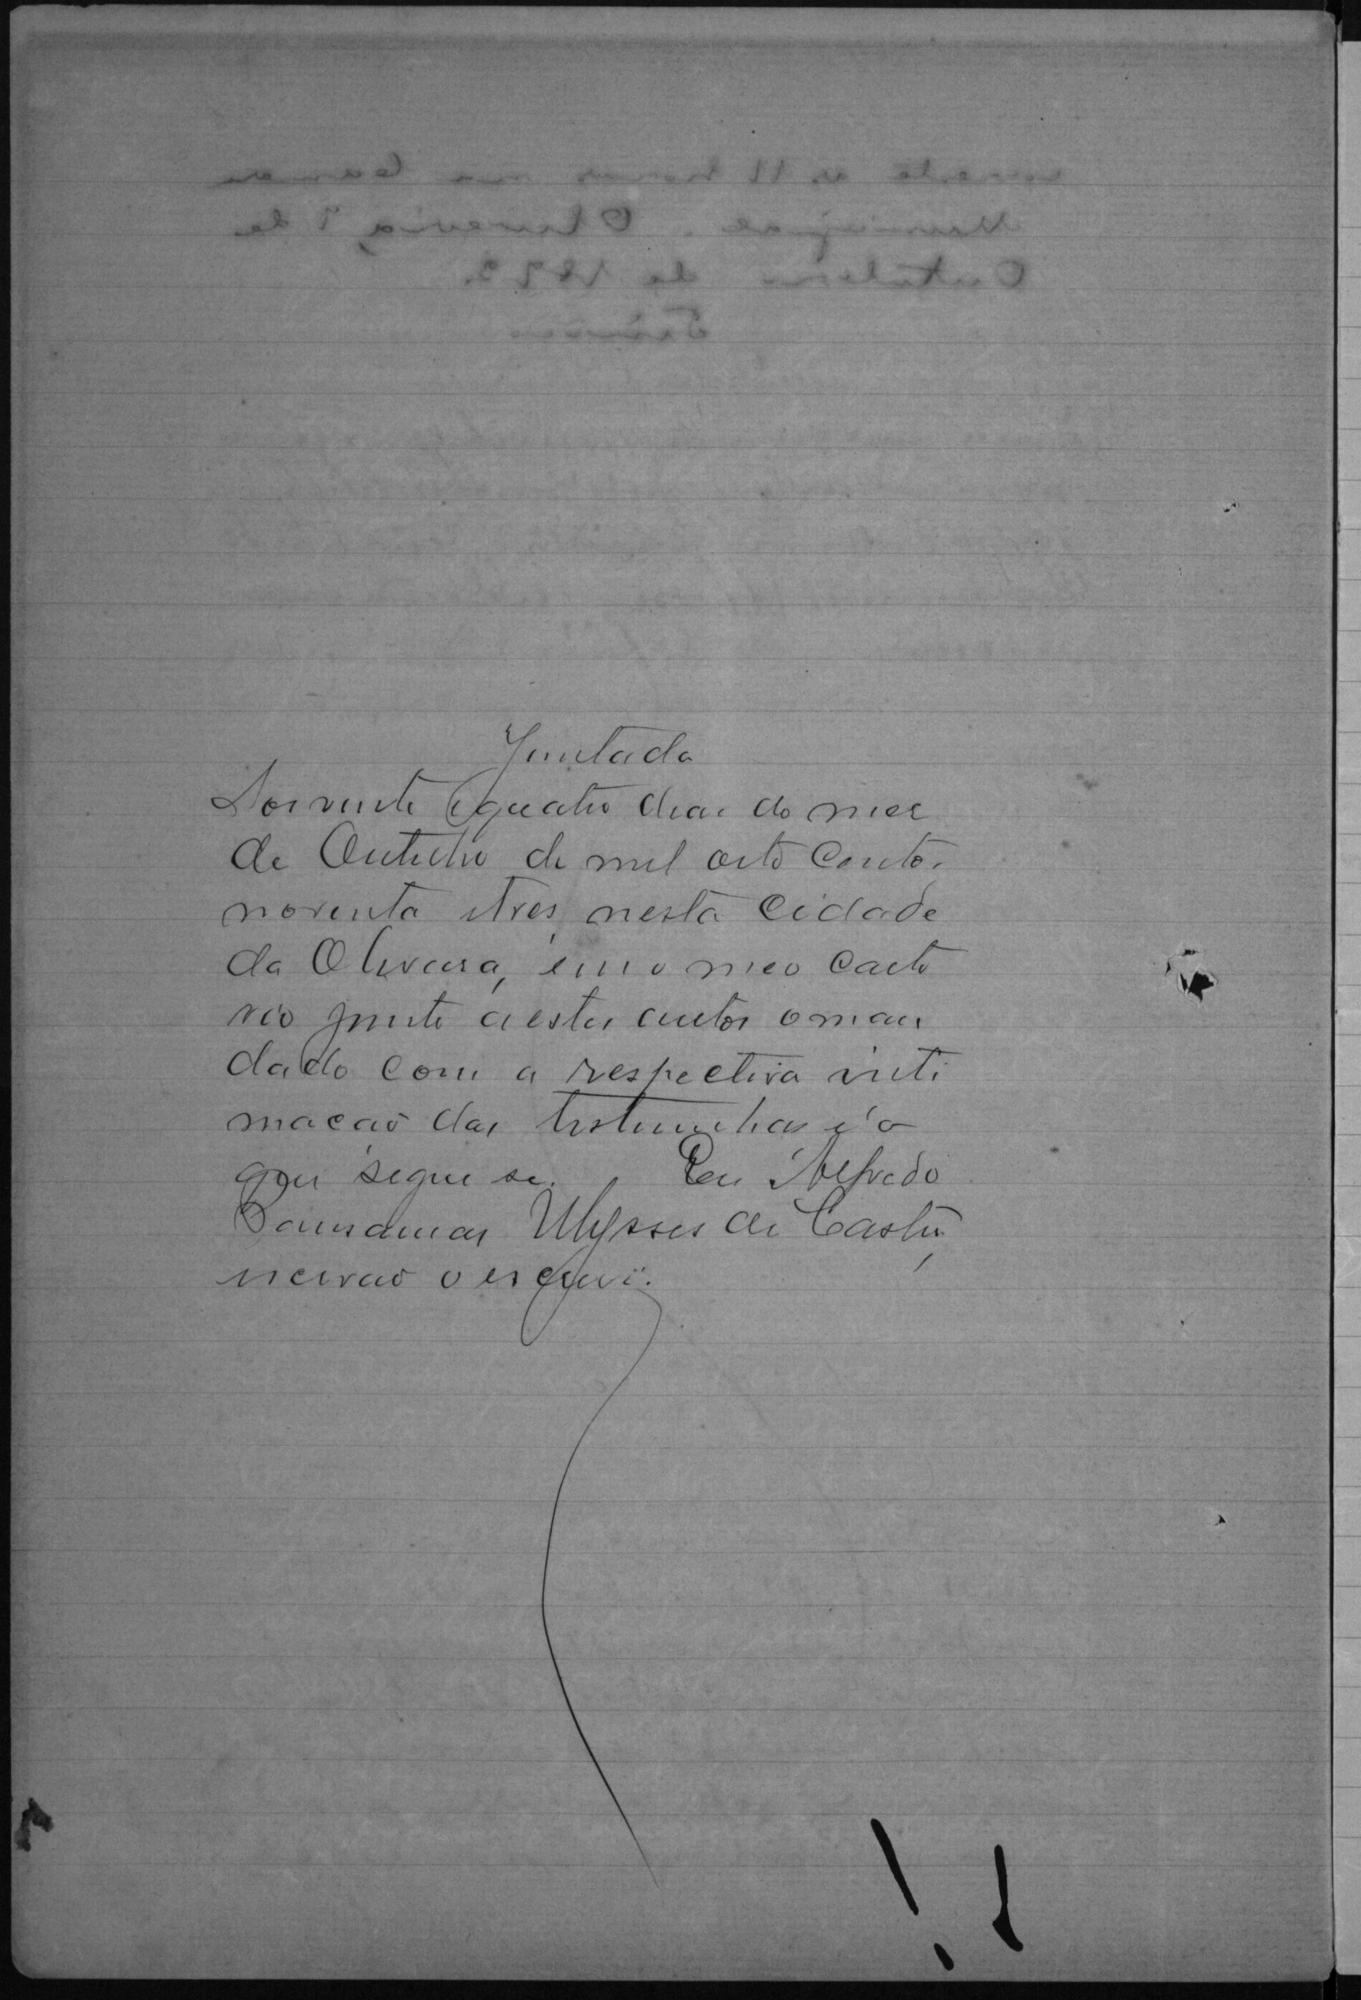 Juntada
Aos vinte e quatro dias do mes
de Outubro de mil oito centos
noventa e tres, nesta Cidade
da Oliveira, em o meo Carto
rio junto a estes autos o man
dado com a respectiva inti
macaõ das testemunhas é o
que segue se. Eu Alfredo
Pausanias Ulysses de Castro,
escrivaõ o escrevi.